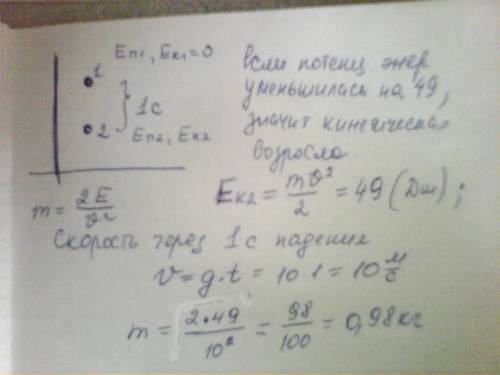 Eп1, Eк1=0
1
1с
2
Eп2; Eк2
Если потенц. энер
уменьшилась на 49,
значит кинетическая
возросла
m = 2E/v²
Eк2 = mv²/2 = 49 (Дж);
Скорость через 1с падения
v = g·t = 10·1 = 10 м/с
m = 2·49/10² = 98/100 = 0,98кг